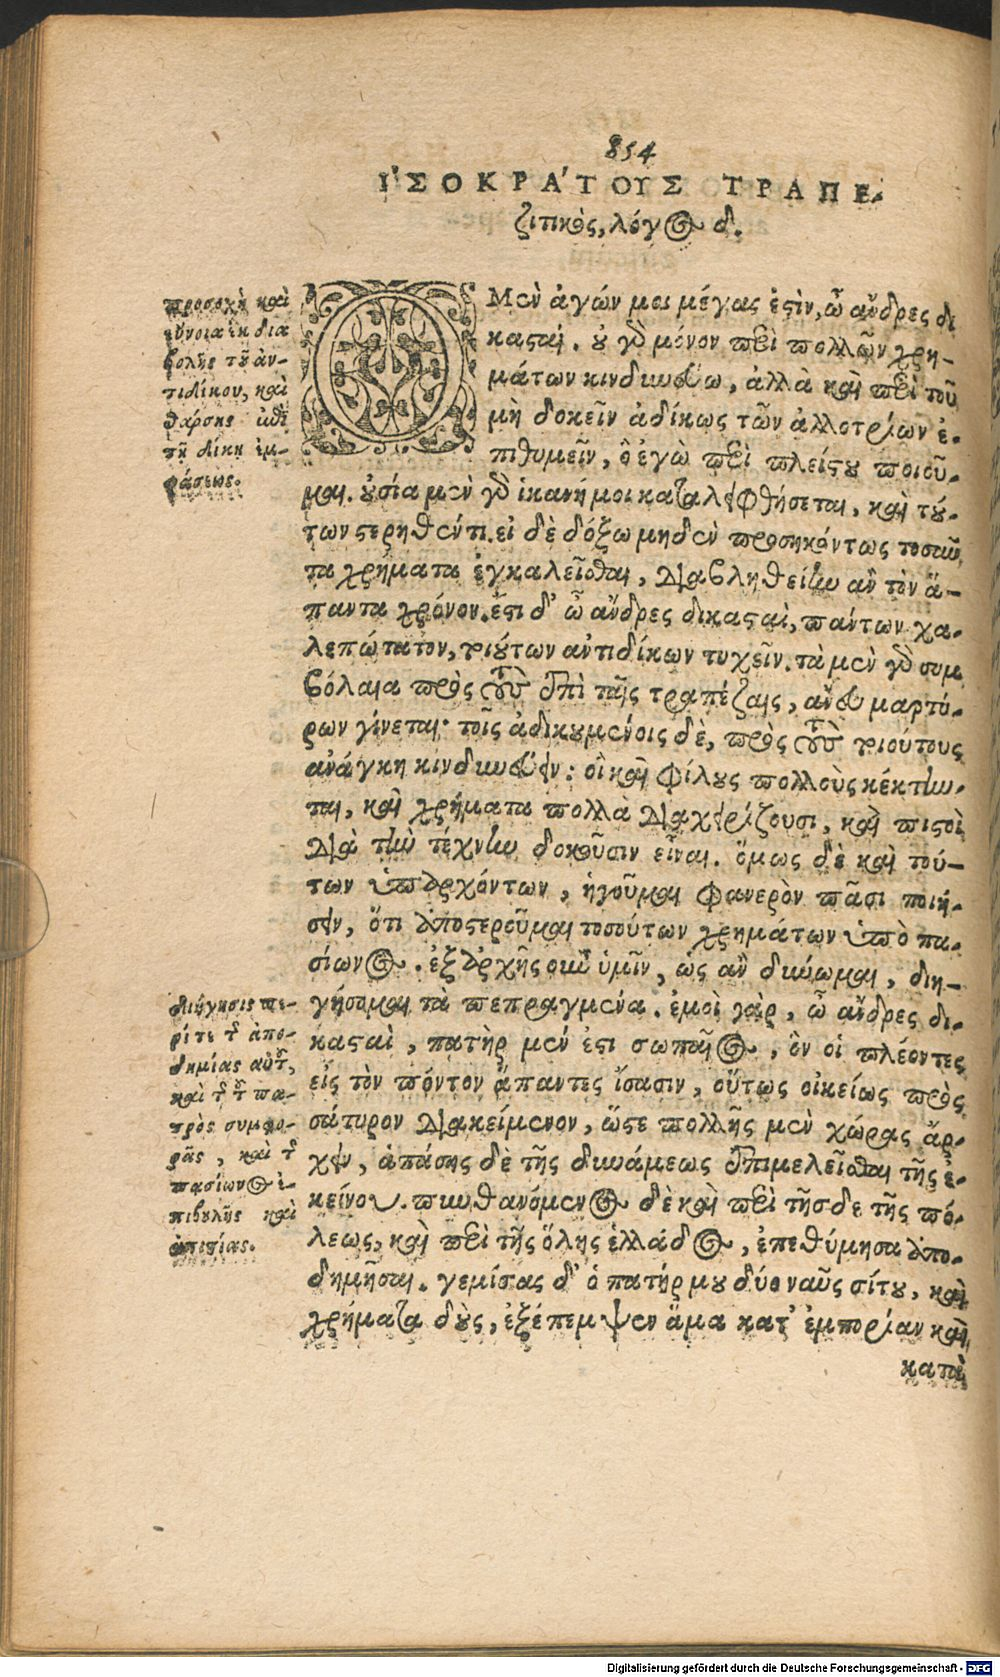 854
ἸΣΟΚΡΆΤΟΥΣ ΤΡΑΠΕ-
ζιτικὸς, λόγος δ.
προσοχὴ καὶ
εὔνοια ἐκ δια
βολῆς τοῦ ἀν-
τιδίκου, καὶ
τῇ δίκῃ ἐμ-
φάσεως.
Ο ΜΕν ἀγών μοι μέγας ἐστὶν, ὦ ἄνδρες δι
κασταί. οὐ γὰρ μόνον περὶ πολλῶν χρη-
μάτων κινδυνεύω, ἀλλὰ καὶ περὶ τοῦ
μὴ δοκεῖν ἀδίκως τῶν ἀλλοτρίων ἐ-
πιθυμεῖν, ὃ ἐγὼ περὶ πλείστου ποιοῦ-
μαι. οὐσία μὲν γὰρ ἱκανή μοι καταλειφθήσεται, καὶ τού-
των στερηθέντι. εἰ δὲ δόξω μηδὲν προσηκόντως τοσαῦ
τα χρήματα ἐγκαλεῖσθαι, διαβληθείην ἂν τὸν ἅ-
παντα χρόνον. ἔστι δ' ὦ ἄνδρες δικασταὶ, πάντων χα-
λεπώτατον, τοιούτων ἀντιδίκων τυχεῖν. τὰ μὲν γὰρ συμ
βόλαια πρὸς τοὺς ἐπὶ ταῖς τραπέζαις, ἄνευ μαρτύ-
ρων γίνεται· τοῖς ἀδικουμένοις δὲ, πρὸς τοὺς τοιούτους
ἀνάγκη κινδυνεύειν: οἳ καὶ φίλους πολλοὺς κέκτην-
ται, καὶ χρήματα πολλὰ διαχειρίζουσι, καὶ πιστοὶ
διὰ τὴν τέχνην δοκοῦσιν εἶναι. ὅμως δὲ καὶ τού-
των ὑπαρχόντων, ἡγοῦμαι φανερὸν πᾶσι ποιή-
σειν, ὅτι ἀποστεροῦμαι τοσούτων χρημάτων ὑπὸ πα-
σίωνος. ἐξ ἀρχῆς οὖν ὑμῖν, ὡς ἂν δύνωμαι, διη-
γήσομαι τὰ πεπραγμένα. ἐμοὶ γὰρ, ὦ ἄνδρες δι-
κασταὶ, πατὴρ μέν ἐστι σωπαῖος, ὃν οἱ πλέοντες
εἰς τὸν πόντον ἅπαντες ἴσασιν, οὕτως οἰκείως πρὸς
σάτυρον διακείμενον, ὥστε πολλῆς μὲν χώρας ἄρ-
χειν, ἁπάσης δὲ τῆς δυνάμεως ἐπιμελεῖσθαι τῆς ἐ-
κείνου. πυνθανόμενος δὲ καὶ περὶ τῆσδε τῆς πό-
λεως, καὶ περὶ τῆς ὅλης ἑλλάδος, ἐπεθύμησα ἀπο-
δημῆσαι. γεμίσας δ' ὁ πατήρ μου δύο ναῦς σίτου, καὶ
χρήματα δοὺς, ἐξέπεμψεν ἅμα κατ' ἐμπορίαν καὶ
κατὰ
διήγησις πε-
ρί τε τῆς ἀπο-
δημίας αὐτοῦ,
καὶ τῆς τοῦ πα-
τρὸς συμφο-
ρᾶς, καὶ τῆς
πασίωνος ἐ-
πιβουλῆς καὶ
ἀπιστίας.
Digitalisierung gefördert durch die Deutsche Forschungsgemeinschaft - DFG